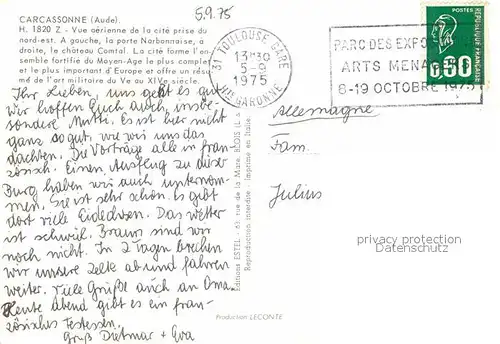 CARCASSONNE (Aude).
H. 1820 Z - Vue aérienne de la cité prise du
nord-est. A gauche, la porte Narbonnaise, à
droite, le château Comtal. La cité forme l'en-
semble fortifié du Moyen-Age le plus complet
et le plus important d'Europe et offre un résu-
mé de l'art militaire du Ve au XIVe siècle.
5.9.75
31 TOULOUSE GARE
13H30
5-9
1975
HTE GARONNE
PARC DES EXPOS
ARTS MENAG
6-19 OCTOBRE 1975
POSTES
REPUBLIQUE FRANCAISE
0,60
Ihr Lieben, uns geht es gut
wir hoffen Euch auch, insbe-
sondere Mutti. Es ist hier nicht
ganz so gut, wie wir uns das
dachten. Die Vorträge alle in fran-
zösisch. Einen Ausflug zu dieser
Burg haben wir auch unternom-
men. Sie ist sehr schön. Es gibt
dort viele Eidechsen. Das Wetter
ist schwül. Braun sind wir
noch nicht. In 2 Tagen brechen
wir unsere Zelte ab und fahren
weiter. Viele Grüße auch an Oma.
Heute abend gibt es ein fran-
zösisches Festessen.
Gruß Dietmar + Eva
Allemagne
Fam.
Julius
Editions ESTEL - 63, rue de la Mare, BLOIS (L.
Reproduction interdite - Imprimé en Italie.
Production LECONTE
privacy protection
Datenschutz